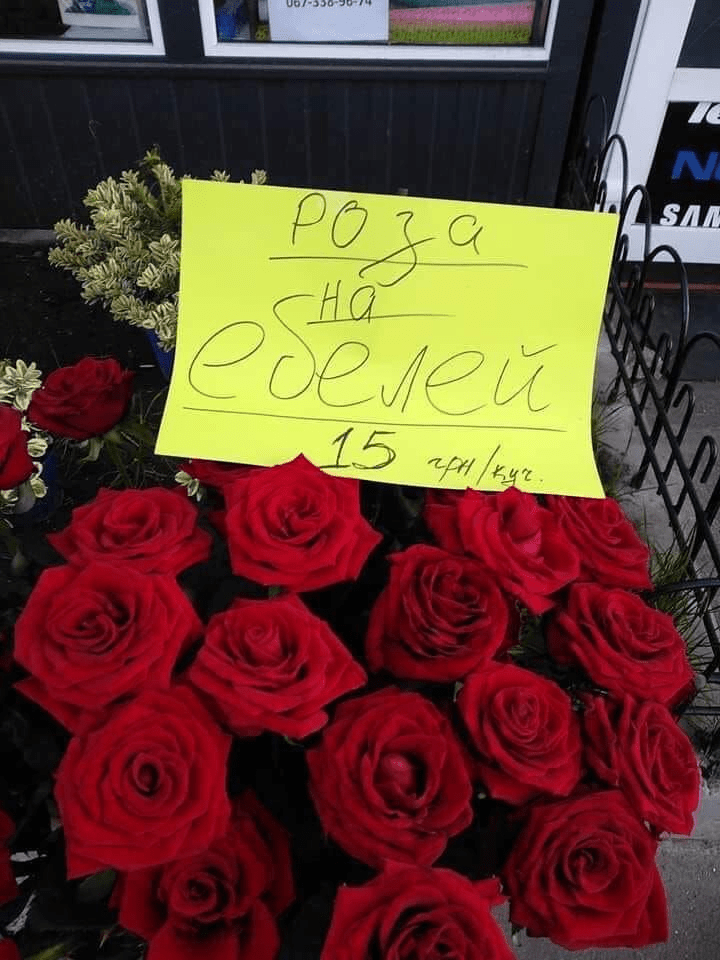 067-338-96-74
Роза
на
ебелей
15 грн/куч.
SAM